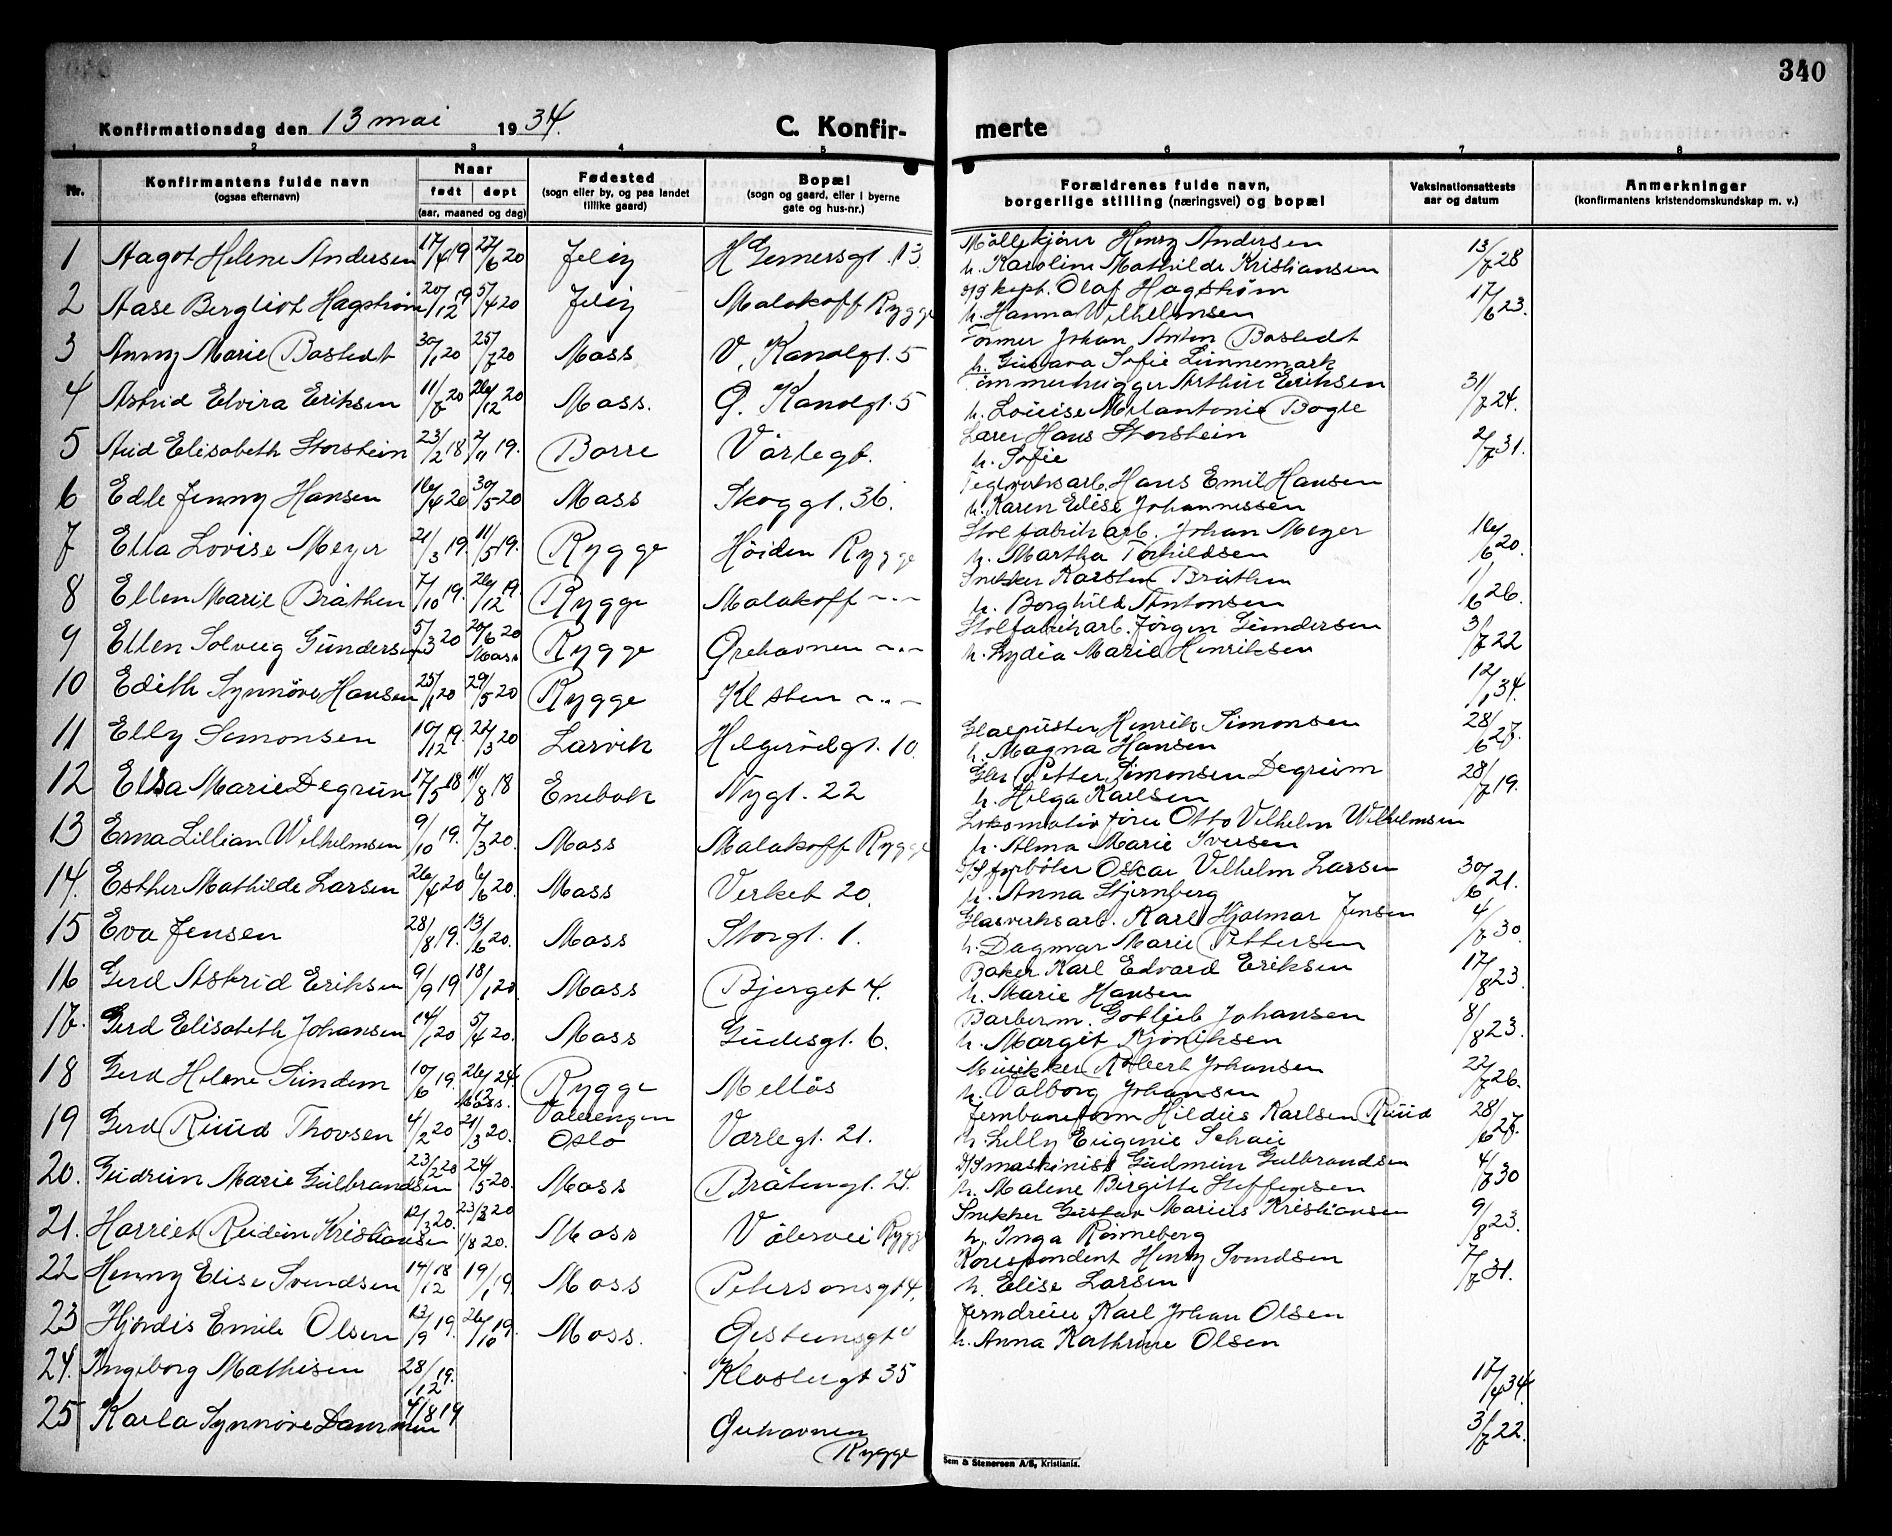 340
Konfirmationsdag den 13 mai 1934.
C. Konfir-
merte
1 2 3 4 5 6 7 8
Nr.
Konfirmantens fulde navn
(ogsaa efternavn)
Naar
født døpt
(aar, maaned og dag)
Fødested
(sogn eller by, og paa landet
tillike gaard)
Bopæl
(sogn og gaard, eller i byerne
gate og hus-nr.)
Forældrenes fulde navn,
borgerlige stilling (næringsvei) og bopæl
Vaksinationsattests
aar og datum
Anmerkninger
(konfirmantens kristendomskundskap m. v.)
1 Aagot Helene Andersen 17/4 19 27/6 20 Jeløy H Gernersgt. 13. Møllekjører Henry Andersen 13/7 28
h. Karoline Mathilde Kristiansen
2 Aase Bergliot Hagstrøm 20/12 19 5/4 20 Jeløy Malakoff Rygge Olaf Hagstrøm 17/6 23.
h. Hanna Wilhelmsen
3 Anny Marie Bastedt 30/1 20 25/7 20 Moss V. Kanalgt. 5 Former Johan Anton Bastedt
h. Gustava Sofie Linnemark
4 Astrid Elvira Eriksen 11/8 20 26/12 20 Moss. Ø. Kanalgt. 5 Tømmerhugger Arthur Eriksen 31/7 24.
h. Louise Bogle
5 Aud Elisabeth Storstein 23/2 18 2/11 19. Borre Vårlegt. Lærer Hans Storstein 2/7 31.
h. Sofie
6 Edle Jenny Hansen 16/4 20 30/5 20 Moss Skoggt. 36. Teglverksarb. Hans Emil Hansen
h. Karen Elise Johannessen
7 Ella Lovise Meyer 21/3 19. 11/5 19. Rygge Høiden Rygge Stolfabrikarb. Johan Meyer 16/6 20.
h. Martha Torhildsen
8 Ellen Marie Bråthen 7/10 19. 26/12 19. Rygge Malakoff -"- Snekker Karsten Bråthen 1/6 26.
h. Borghild Antonsen
9 Ellen Solveig Gundersen 5/3 20 20/6 20 Moss Rygge Grehavnen -"- Stolfabrikarb. Jørgen Gundersen 3/7 22
h. Lydia Marie Henriksen
10 Edith Synnøve Hansen 25/1 20 29/5 20 Rygge Kl sten -"- 12/1 34.
11 Elly Simonsen 10/12 19. 22/3 20 Larvik Helgerødgt. 10. Glaspuster Henrik Simonsen 28/6 27.
h. Magna Hansen
12 Elsa Marie Degrum 17/5 18 11/8 18 Enebak Nygt. 22 Petter Simonsen Degrum 28/7 19.
h. Helga Karlsen
13 Erna Lillian Wilhelmsen 9/10 19. 7/3 20. Moss Malakoff Rygge Lokomotivfører Otto Vilhelm Wilhelmsen
h. Alma Marie Iversen
14. Esther Mathilde Larsen 26/4 20 6/6 20. Moss Verket 20. D/S fyrbøter Oskar Vilhelm Larsen 30/6 21.
h. Anna Stjernberg
15 Eva Jensen 28/8 19. 13/6 20. Moss Storgt. 1. Glasverksarb. Karl Hjalmar Jensen 4/7 30.
h. Dagmar Marie Pettersen
16 Gerd Astrid Eriksen 9/9 19 18/1 20 Moss Bjerget 4. Baker Karl Edvard Eriksen 17/8 23.
h. Marie Hansen
17. Gerd Elisabeth Johansen 14/1 20 5/4 20. Moss Gudesgt. 6. Barberm. Gotlieb Johansen 8/8 23.
h. Margit Kjøniksen
18 Gerd Helene Sundem 10/6 19. 26/12 24. Moss. Rygge Melløs Musikker Albert Johansen 22/7 26.
h. Valborg Johansen
19 Gerd Ruud Thovsen 4/2 20 21/3 20. Vålerengen Oslo Varlegt. 21. Jernbaneform Hildus Karlsen Ruud 28/6 27.
h. Lilly Eugenie Schau
20. Gudrun Marie Gulbrandsen 23/2 20 24/5 20. Moss Bråtengt. 24. D/S maskinist Gudmun Gulbrandsen 4/7 30
h. Malene Birgitte Steffensen
21. Harriet Reidun Kristiansen 12/3 20. 1/8 20. Moss Vålervei Rygge Snekker Gustav Marius Kristiansen 9/8 23.
h. Inga Rønneberg
22 Henny Elise Svendsen 14/12 18 19/1 19. Moss Petersonsgt 4. Korrespondent Henry Svendsen 7/7 31.
h. Elise Larsen
23 Hjørdis Emilie Olsen 13/9 19. 26/10 19. Moss. Jerndreier Karl Johan Olsen
h. Anna Kathrine Olsen
24. Ingeborg Mathisen 28/12 19. Klostergt 35 17/4 34.
25 Karla Synnøve Dammen 4/8 19 Grehavnen 3/7 22.
Rygge
Sem & Stenersen A/S, Kristiania.